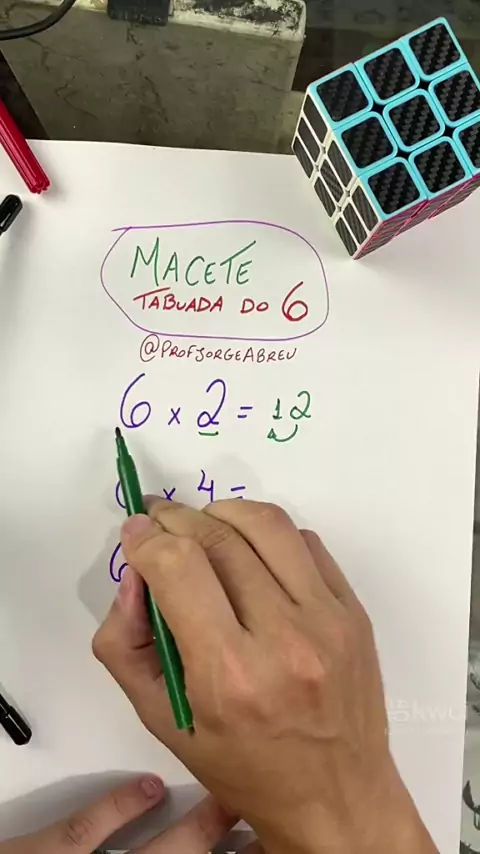 MACETE
TABUADA DO 6
@PROFJORGEABREU
6 x 2 = 12
x 4 =
6